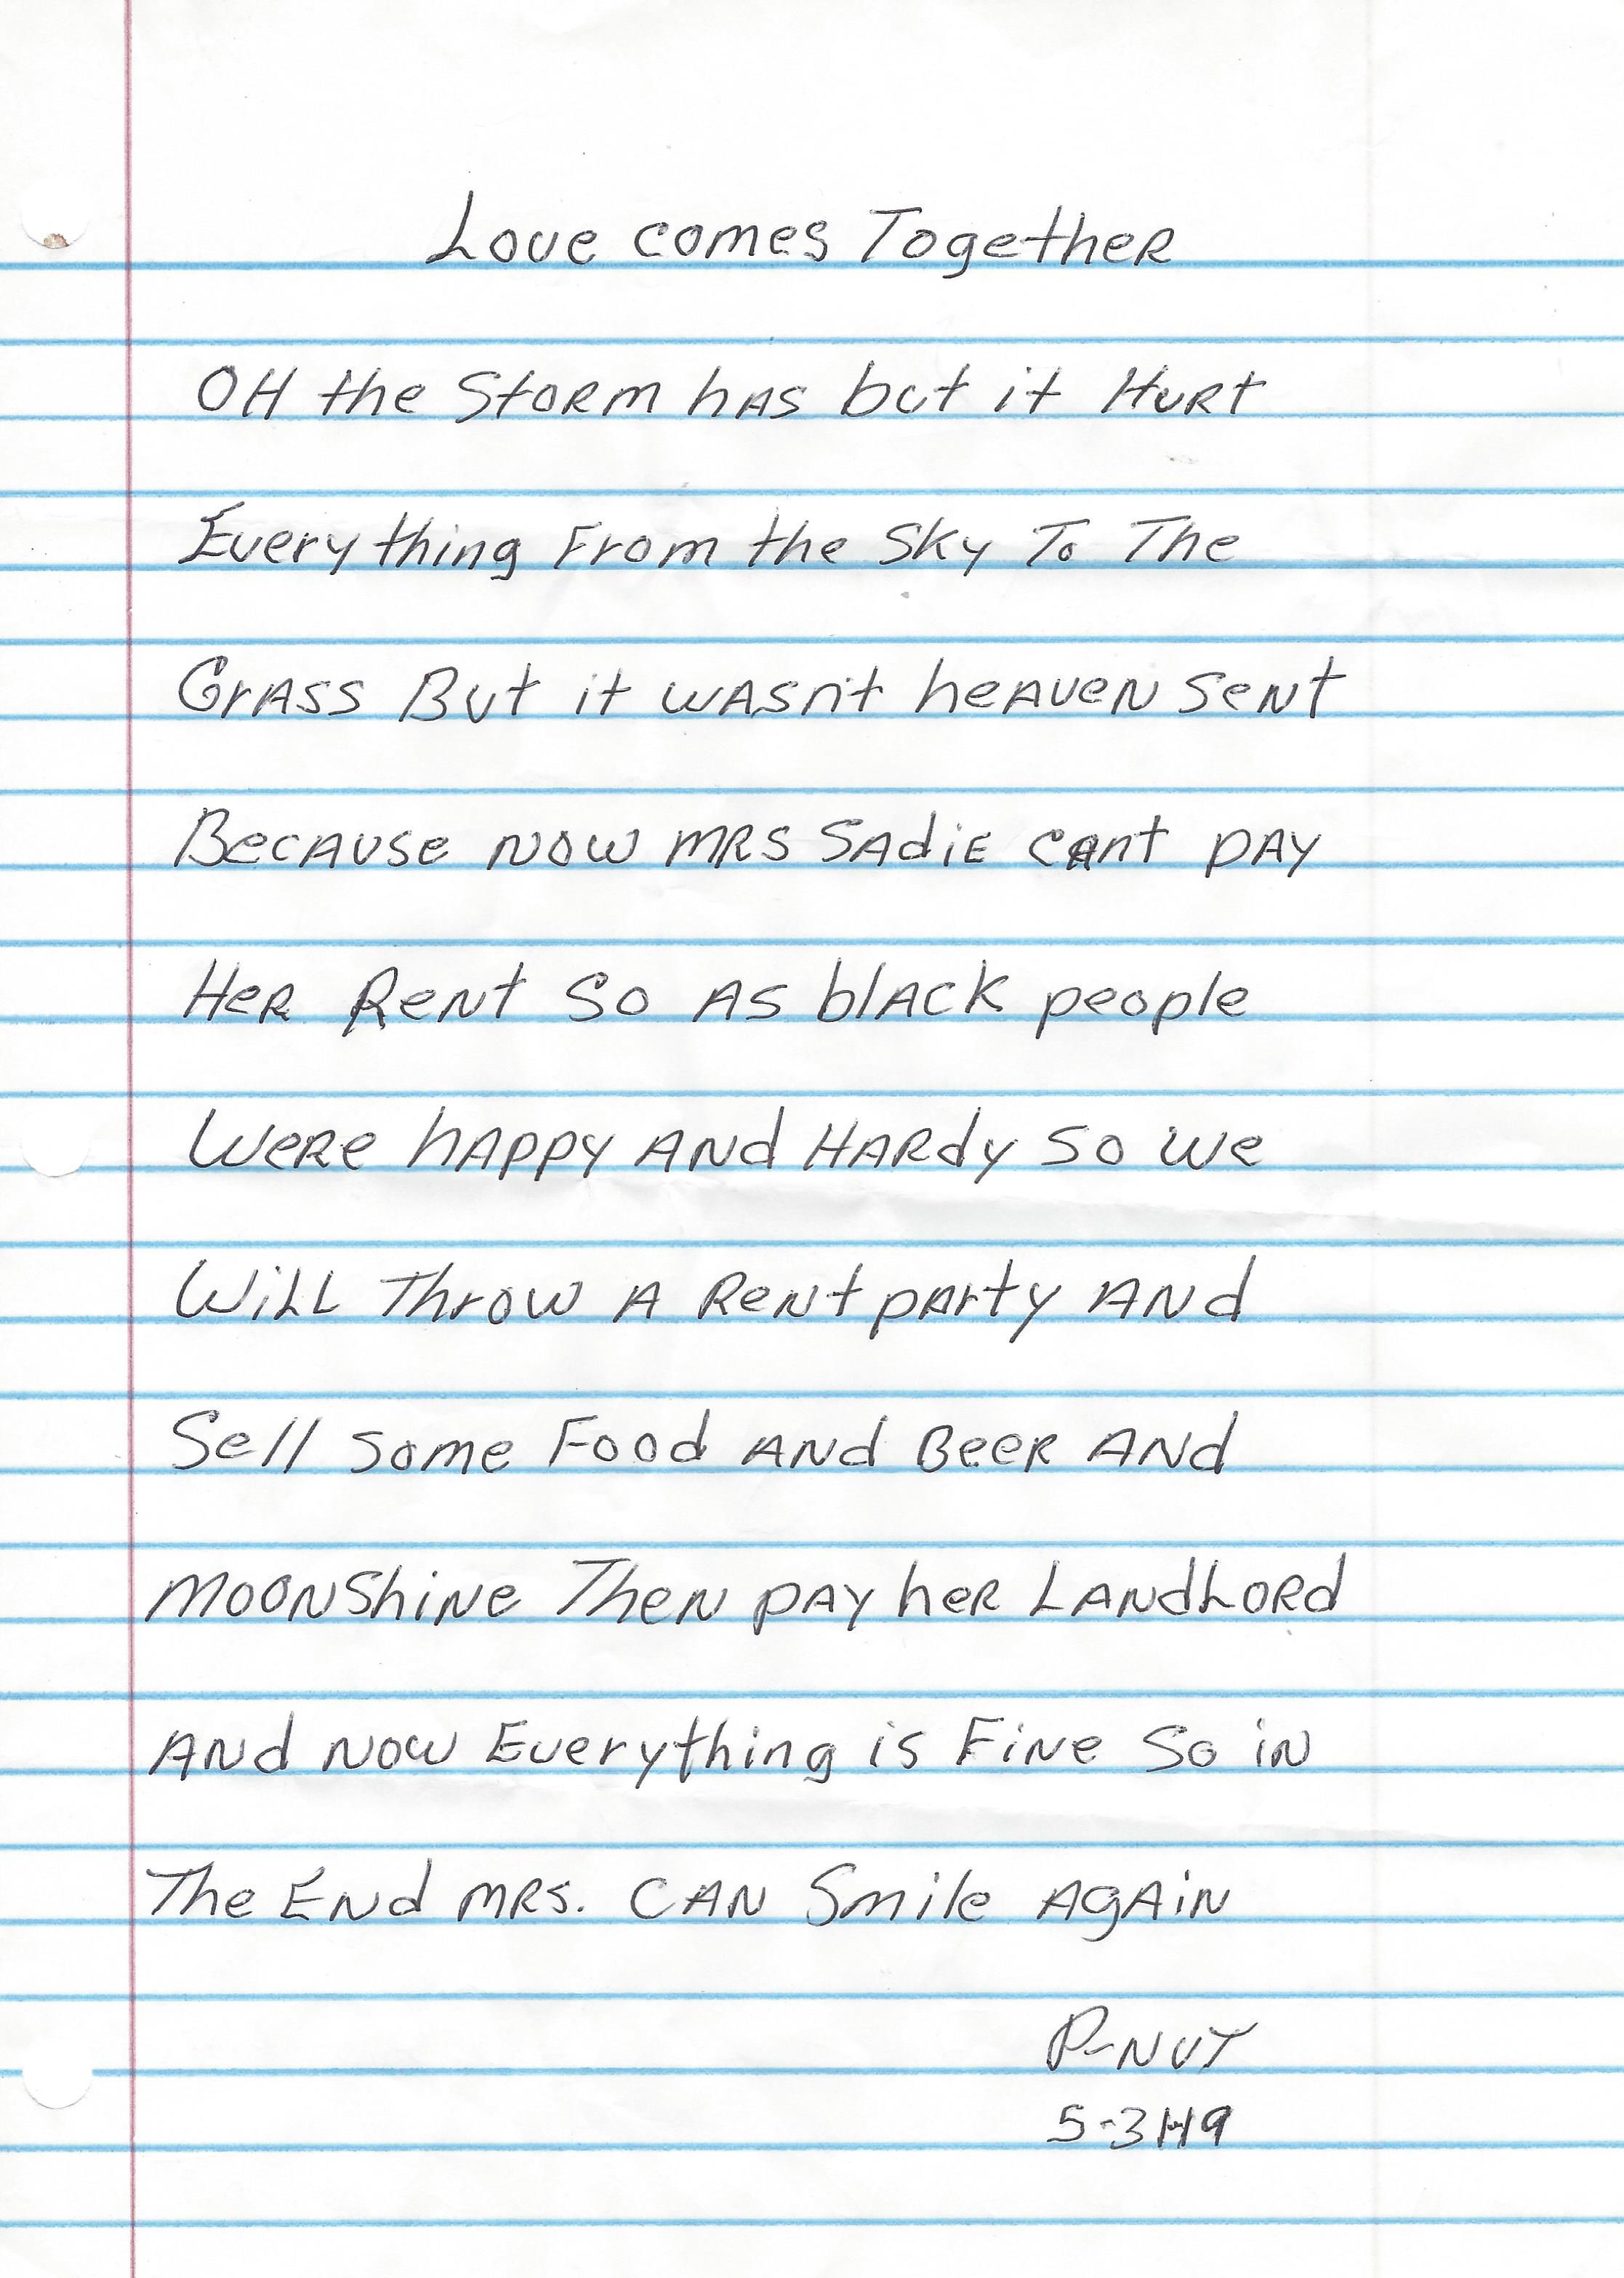 Love comes Together
OH the StoRm hAS but it HuRt
Everything From the Sky To The
GrASS But it wASn't heAveN SeNt
BecAuse NOW MRS SAdiE cAnt pAy
HeR ReNt So AS blAck people
WeRe hAppy ANd HARdy So we
WiLL Throw A ReNt pArty ANd
Sell some Food ANd BeeR ANd
MOONShiNe TheN pAy heR LANdLoRd
ANd NOW Everything is FiNe So iN
The ENd MRS. CAN Smile AgAiN
P-NUT
5-31-19